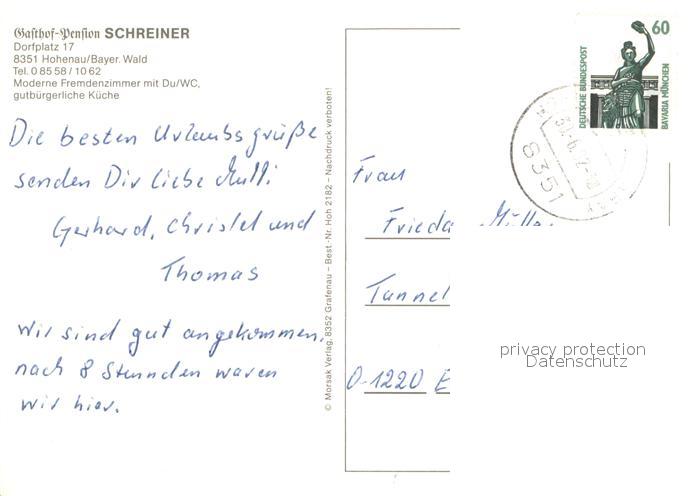 Gasthof-Pension SCHREINER
Dorfplatz 17
8351 Hohenau/Bayer. Wald
Tel. 0 85 58 / 10 62
Moderne Fremdenzimmer mit Du/WC,
gutbürgerliche Küche
Die besten Urlaubsgrüße
senden Dir liebe Mutti
Gerhard, Christel und
Thomas
Wir sind gut angekommen,
nach 8 Stunnden waren
wir hier.
© Morsak Verlag, 8352 Grafenau – Best.-Nr. Hoh 2182 – Nachdruck verboten!
60
DEUTSCHE BUNDESPOST
BAVARIA MÜNCHEN
8351
Frau
Frieda Müller
Tunnel
O-1220 E
privacy protection
Datenschutz